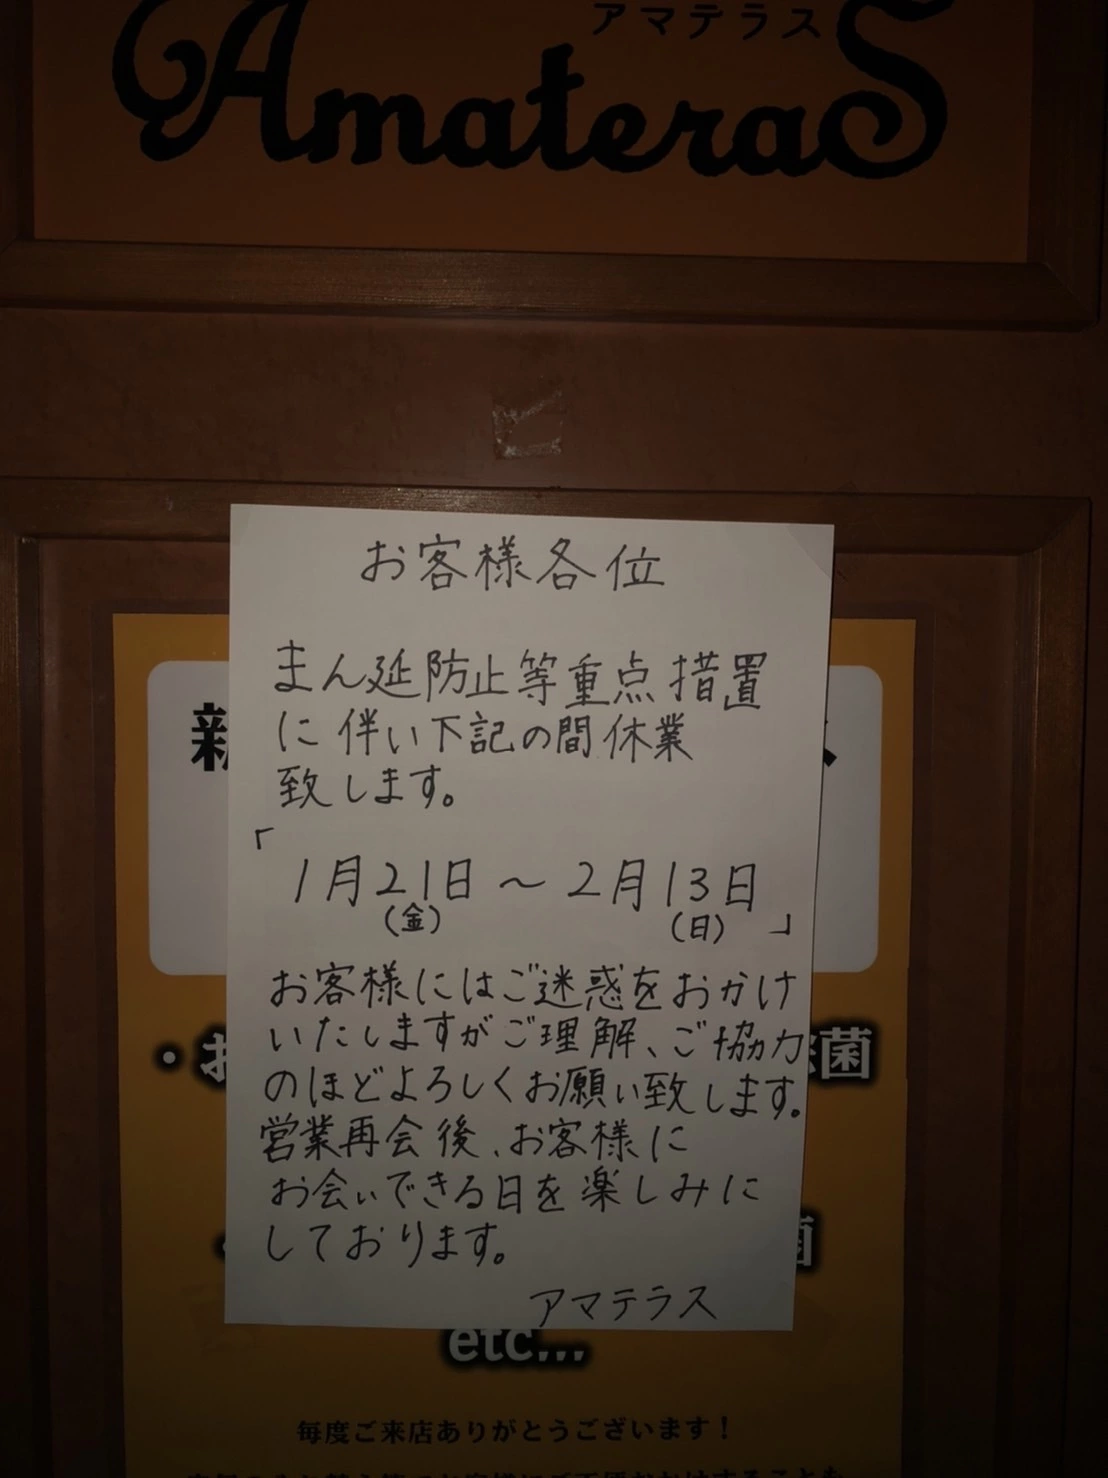 アマテラス
AmateraS
お客様各位
まん延防止等重点措置
に伴い下記の間休業
致します。
「
1月21日 ～ 2月13日
(金) (日) 」
お客様にはご迷惑をおかけ
いたしますがご理解、ご協力
のほどよろしくお願い致します。
営業再会後、お客様に
お会いできる日を楽しみに
しております。
アマテラス
新
・お
菌
菌
etc...
毎度ご来店ありがとうございます！